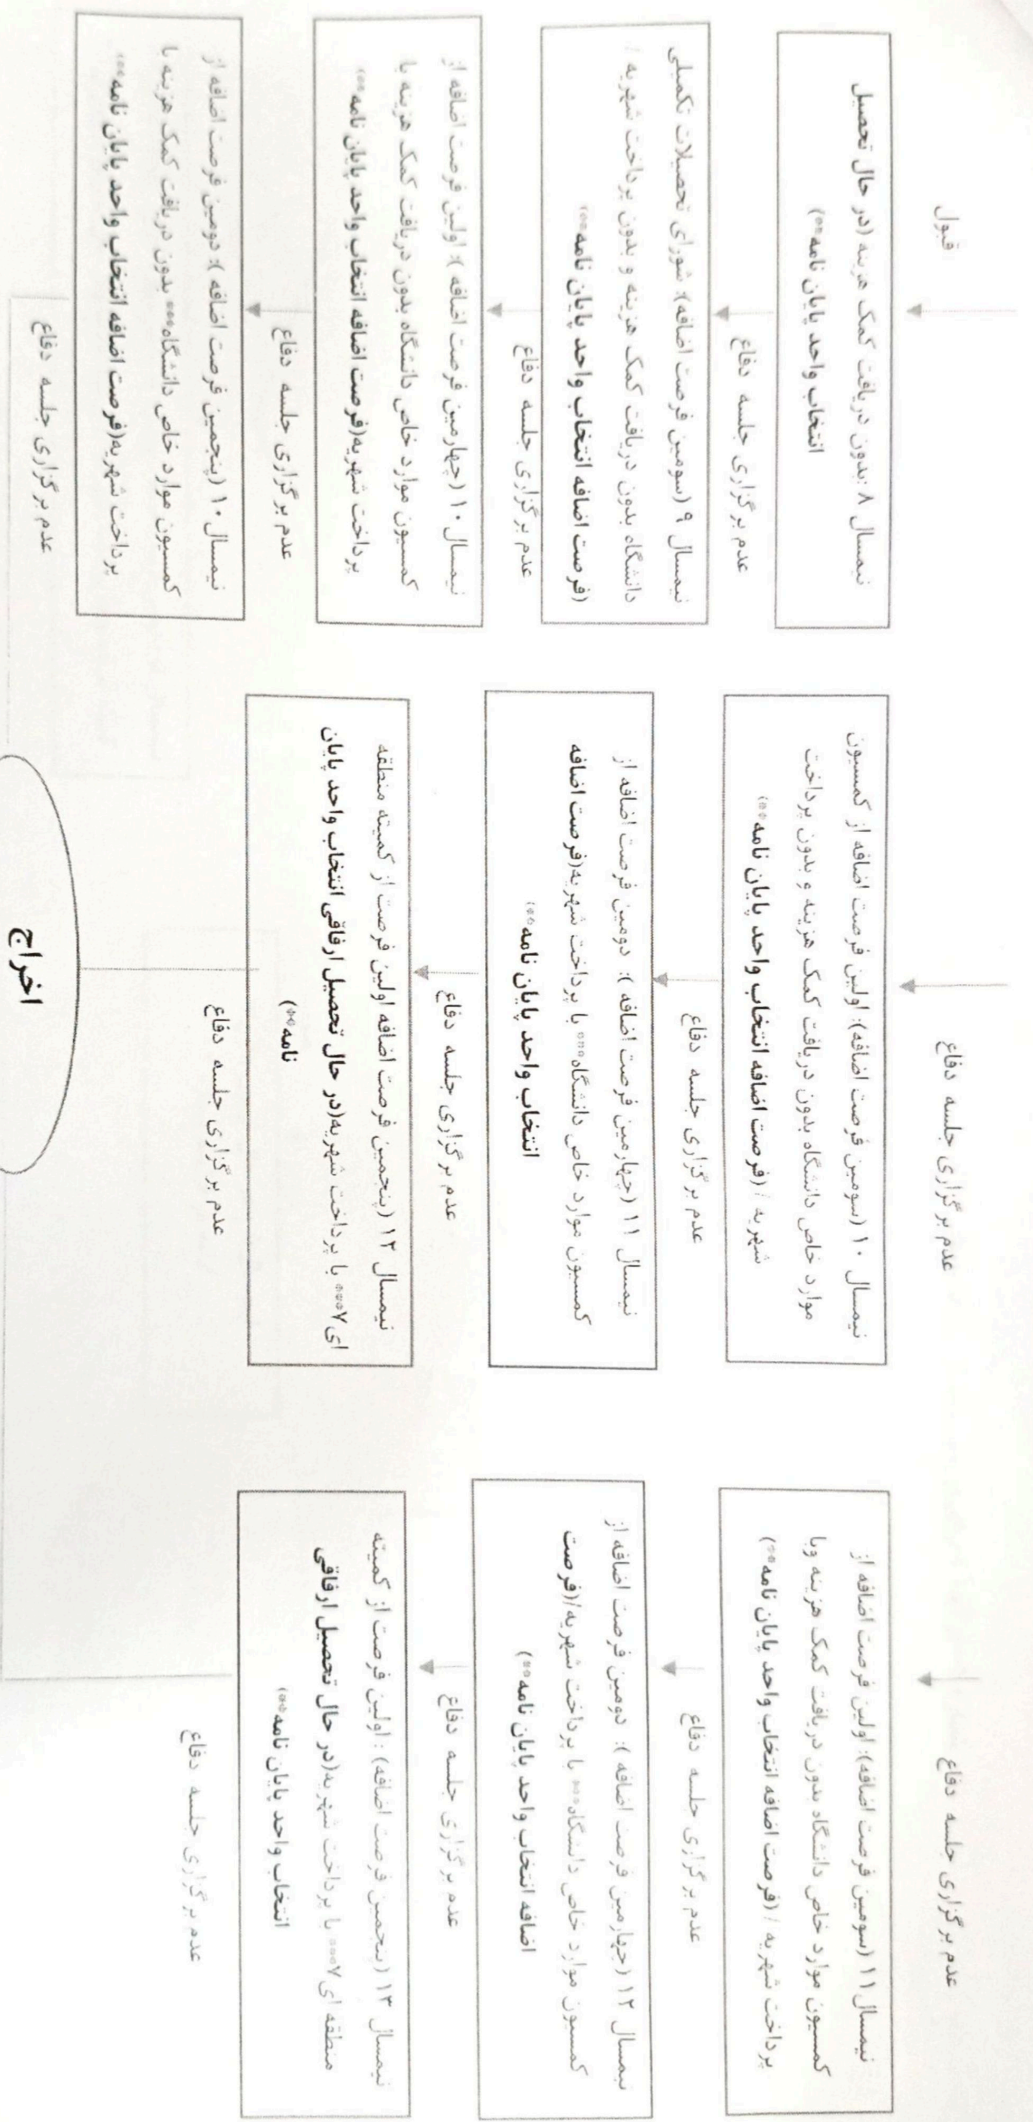 قبول
نیمسال ۸ :بدون دریافت کمک هزینه (در حال تحصیل
انتخاب واحد پایان نامه**)
عدم برگزاری جلسه دفاع
نیمسال ۹ (سومین فرصت اضافه): شورای تحصیلات تکمیلی
دانشگاه بدون دریافت کمک هزینه و بدون پرداخت شهریه /
(فرصت اضافه انتخاب واحد پایان نامه**)
عدم برگزاری جلسه دفاع
نیمسال ۱۰ (چهارمین فرصت اضافه ): اولین فرصت اضافه از
کمسیون موارد خاص دانشگاه بدون دریافت کمک هزینه با
پرداخت شهریه(فرصت اضافه انتخاب واحد پایان نامه**)
عدم برگزاری جلسه دفاع
نیمسال ۱۰ (پنجمین فرصت اضافه ): دومین فرصت اضافه از
کمسیون موارد خاص دانشگاه*** بدون دریافت کمک هزینه با
پرداخت شهریه(فرصت اضافه انتخاب واحد پایان نامه**)
عدم برگزاری جلسه دفاع
عدم برگزاری جلسه دفاع
نیمسال ۱۰ (سومین فرصت اضافه): اولین فرصت اضافه از کمسیون
موارد خاص دانشگاه بدون دریافت کمک هزینه و بدون پرداخت
شهریه / (فرصت اضافه انتخاب واحد پایان نامه**)
عدم برگزاری جلسه دفاع
نیمسال ۱۱ (چهارمین فرصت اضافه ): دومین فرصت اضافه از
کمسیون موارد خاص دانشگاه*** با پرداخت شهریه(فرصت اضافه
انتخاب واحد پایان نامه**)
عدم برگزاری جلسه دفاع
نیمسال ۱۲ (پنجمین فرصت اضافه اولین فرصت از کمیته منطقه
ای۷*** با پرداخت شهریه(در حال تحصیل ارفاقی انتخاب واحد پایان
نامه**)
عدم برگزاری جلسه دفاع
عدم برگزاری جلسه دفاع
نیمسال ۱۱ (سومین فرصت اضافه): اولین فرصت اضافه از
کمسیون موارد خاص دانشگاه بدون دریافت کمک هزینه وبا
پرداخت شهریه / (فرصت اضافه انتخاب واحد پایان نامه**)
عدم برگزاری جلسه دفاع
نیمسال ۱۲ (چهارمین فرصت اضافه ): دومین فرصت اضافه از
کمسیون موارد خاص دانشگاه*** با پرداخت شهریه/(فرصت
اضافه انتخاب واحد پایان نامه**)
عدم برگزاری جلسه دفاع
نیمسال ۱۳ (پنجمین فرصت اضافه) : اولین فرصت از کمیته
منطقه ای۷*** با پرداخت شهریه(در حال تحصیل ارفاقی
انتخاب واحد پایان نامه**)
عدم برگزاری جلسه دفاع
اخراج